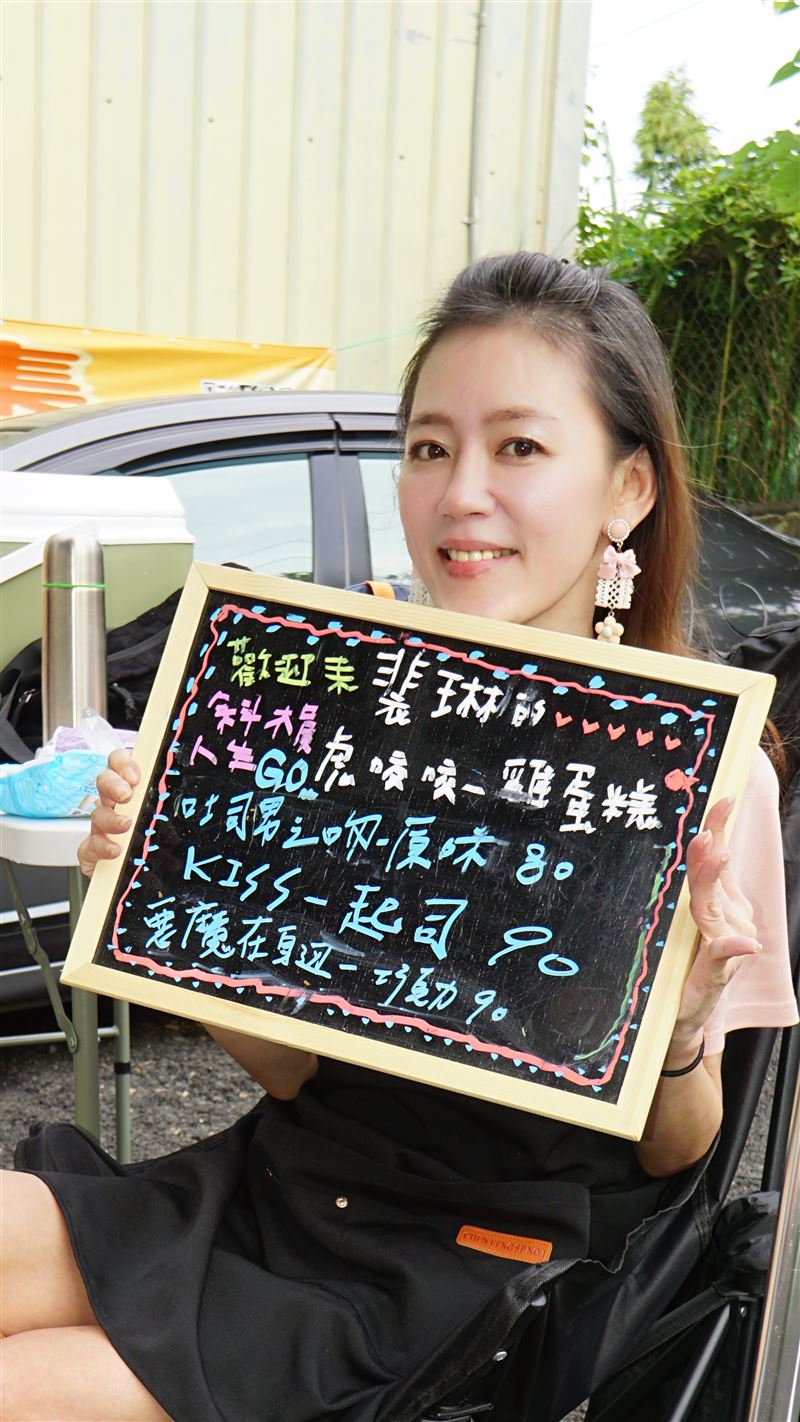 歡迎來 裴琳的
斜槓
人生GO 虎咬咬-雞蛋糕
吐司男之吻-原味 80
KISS-起司 90
惡魔在身边-巧克力 90
CHEN FENG SP NO.1